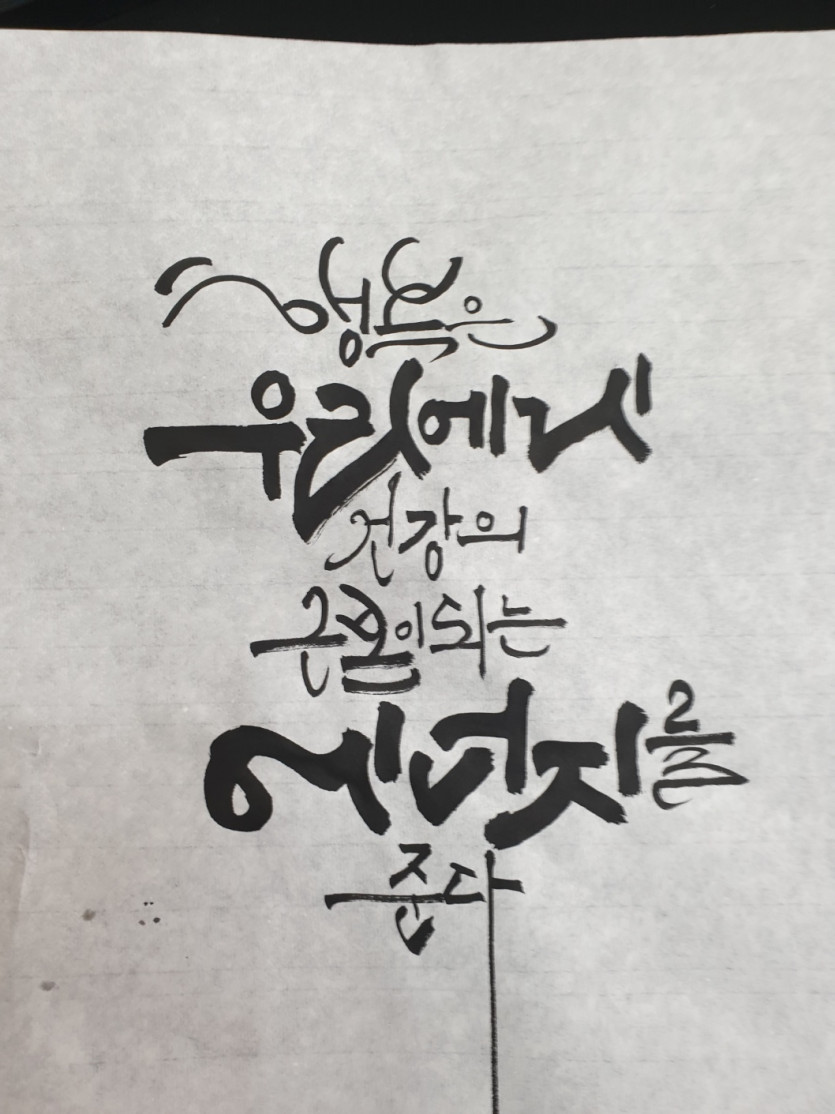 행복은
우리에게
건강의
근본이 되는
에너지를
준다